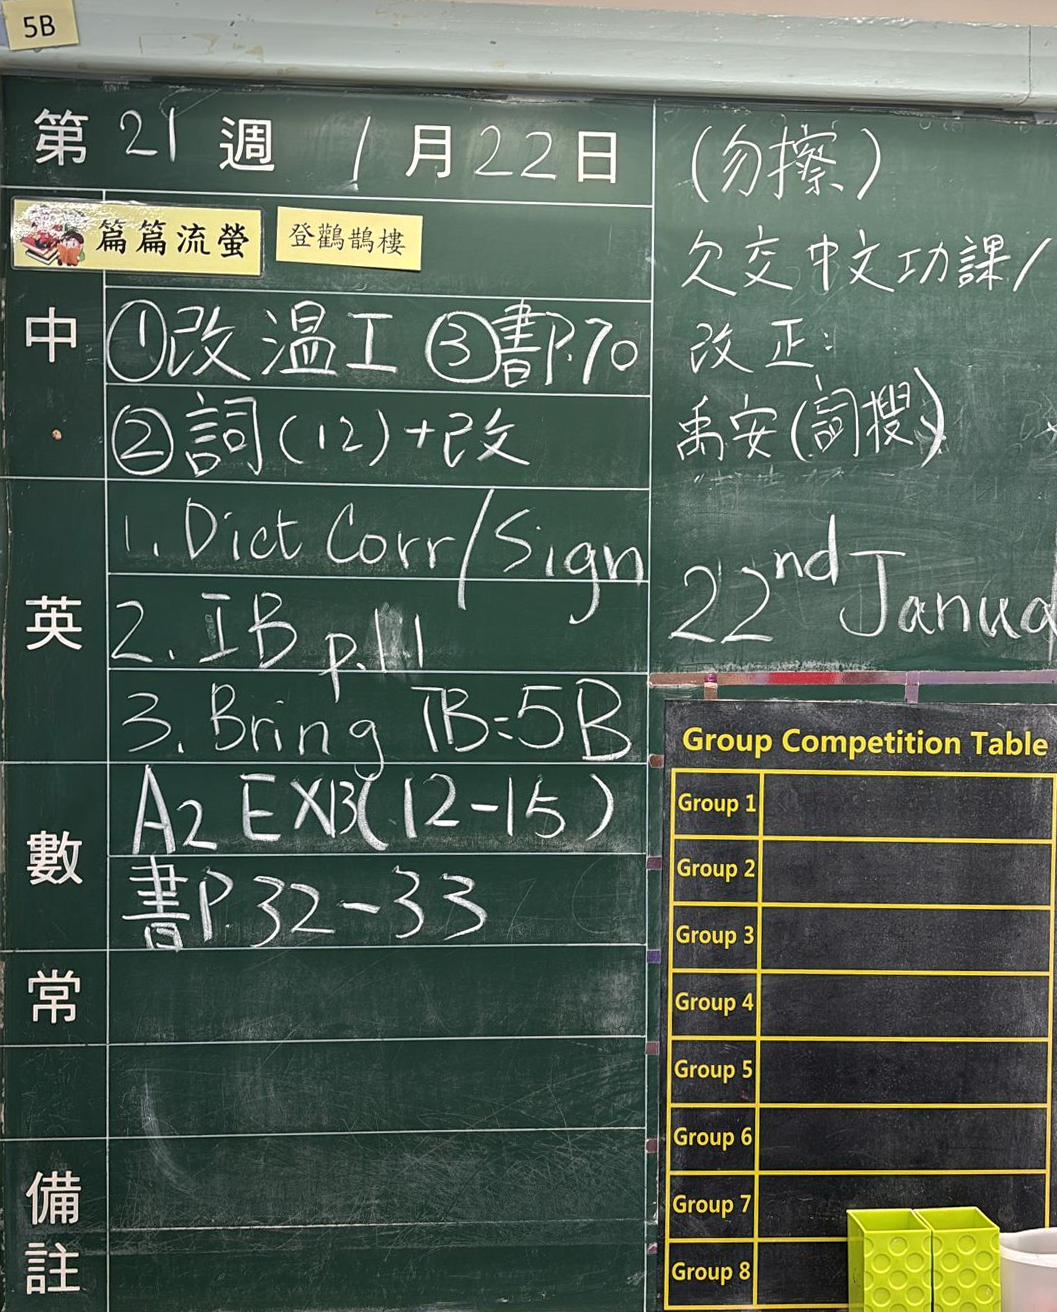 5B
第 21 週 1 月 22 日
篇篇流螢 登鸛鵲樓
中
①改 溫工 ③書P.70
②詞(12)+改
英
1. Dict Corr/Sign
2. IB p.111
3. Bring TB:5B
數
A2 EXB(12-15)
書P.32-33
常
備註
(勿擦)
欠交中文功課/
改正:
禹安(詞搜)
22nd Janua
Group Competition Table
Group 1
Group 2
Group 3
Group 4
Group 5
Group 6
Group 7
Group 8